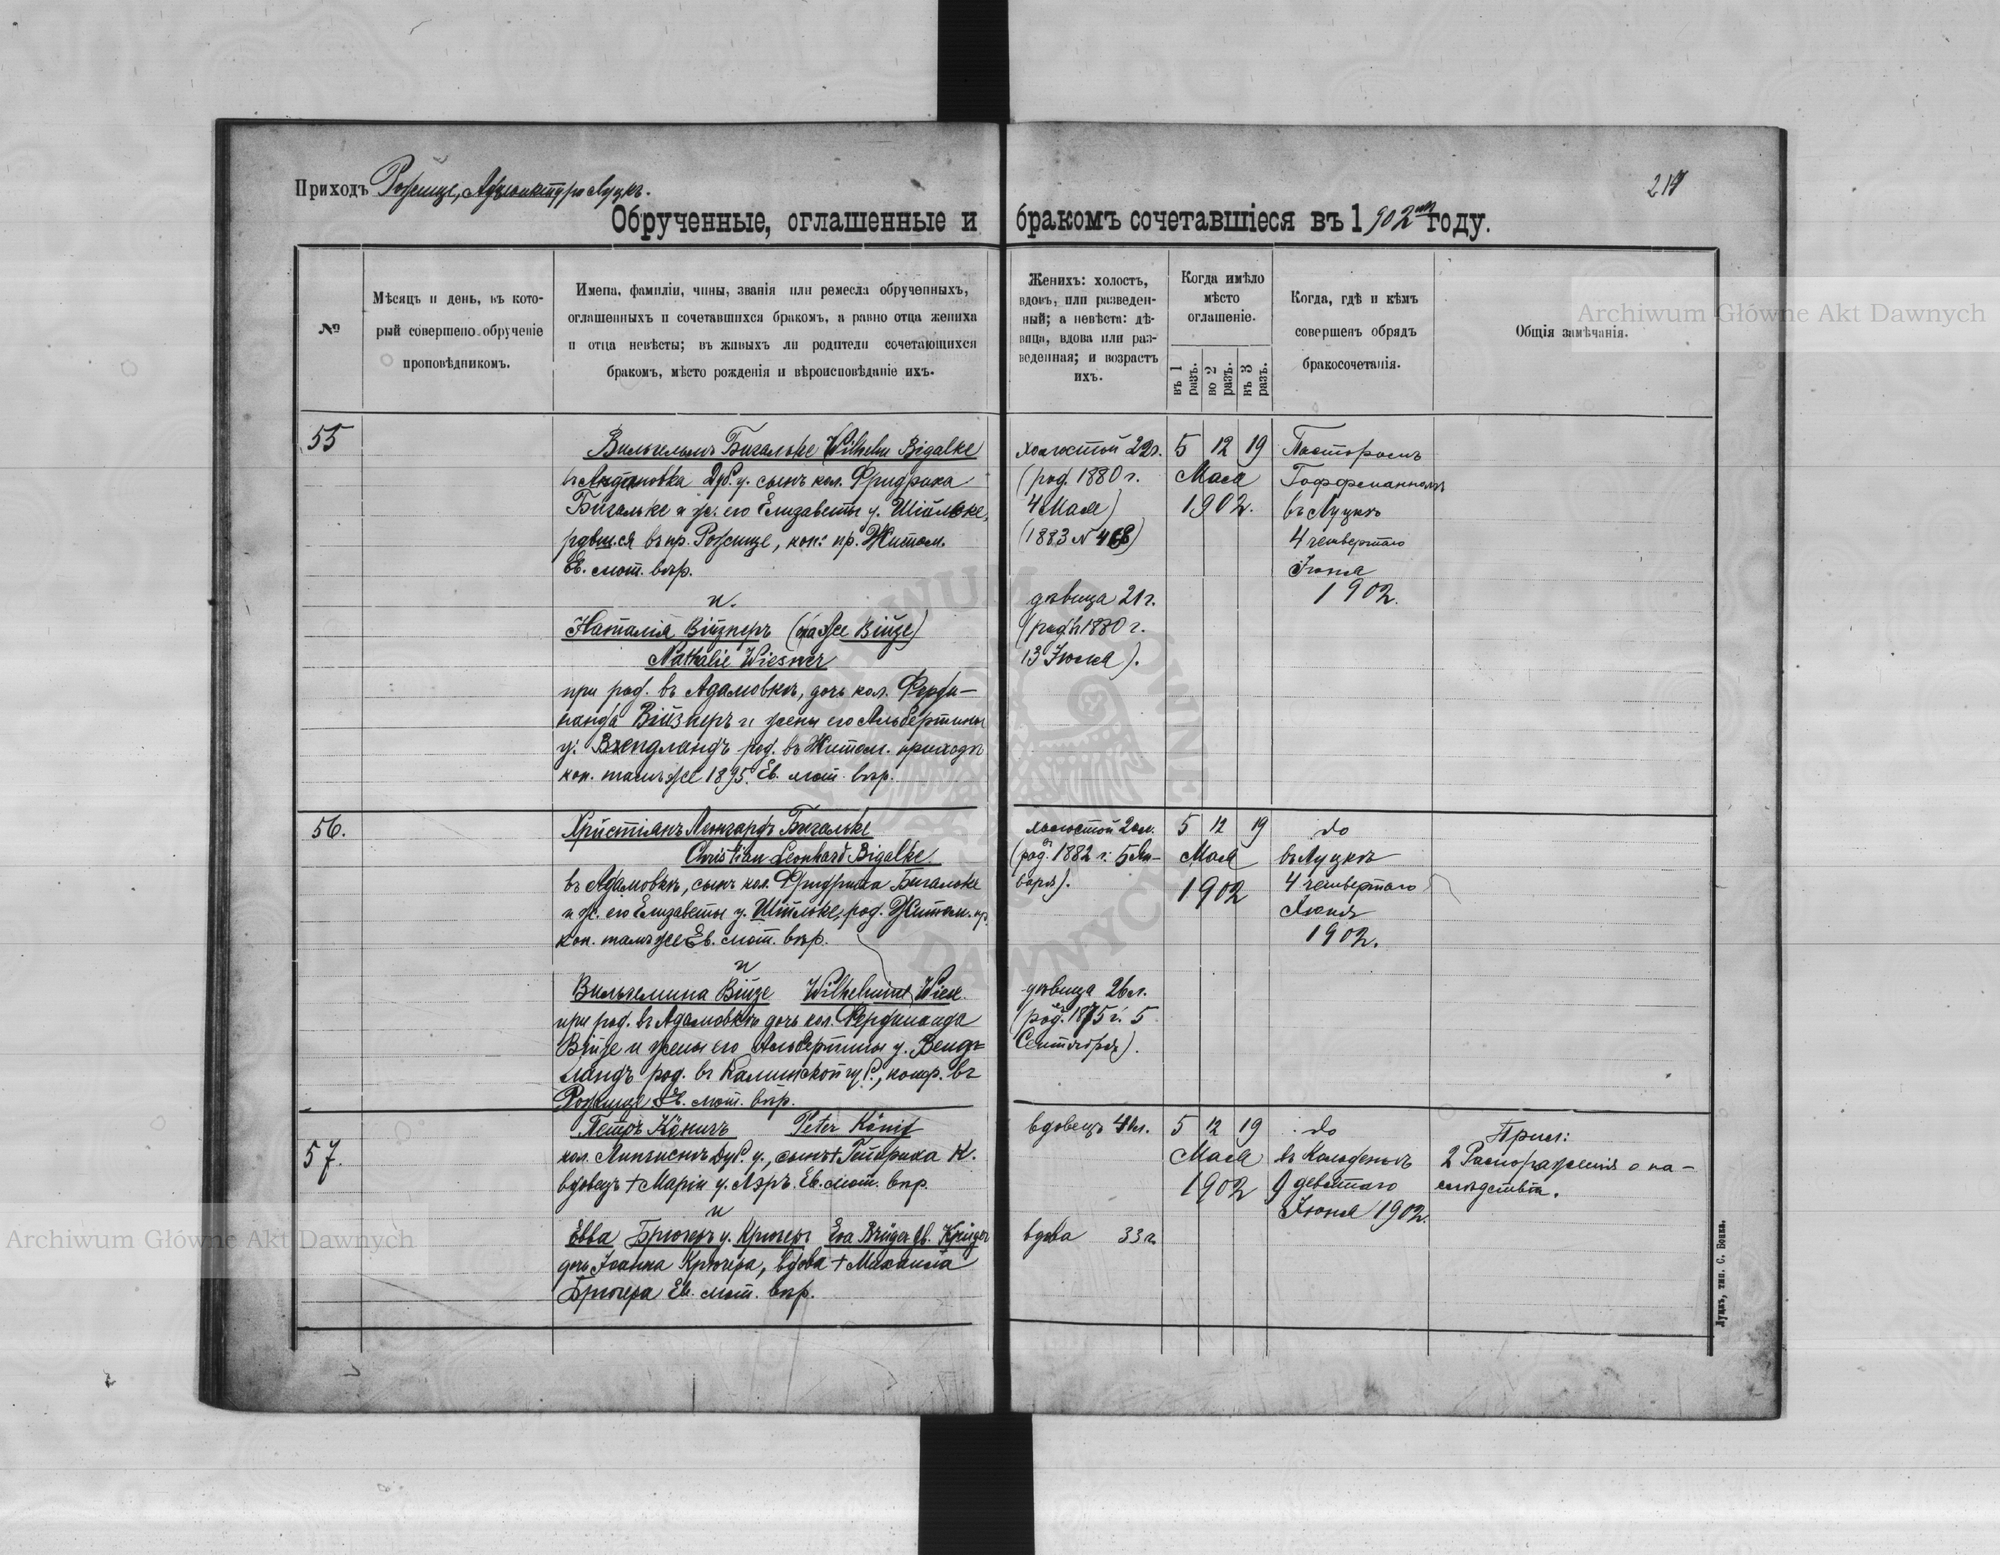 Приходъ Рожище, Адъюнктура Луцкъ.
217
Обрученные, оглашенные и бракомъ сочетавшіеся въ 1902 году.
№
Мѣсяцъ и день, въ кото-
рый совершено обрученіе
проповѣдникомъ.
Имена, фамиліи, чины, званія или ремесла обрученныхъ,
оглашенныхъ и сочетавшихся бракомъ, а равно отца жениха
и отца невѣсты; въ живыхъ ли родители сочетающихся
бракомъ, мѣсто рожденія и вѣроисповѣданіе ихъ.
Женихъ: холостъ,
вдовъ, или разведен-
ный; а невѣста: дѣ-
вица, вдова или раз-
веденная; и возрастъ
ихъ.
Когда имѣло
мѣсто
оглашеніе.
въ 1 разъ.
во 2 разъ.
въ 3 разъ.
Когда, гдѣ и кѣмъ
совершенъ обрядъ
бракосочетанія.
Общія замѣчанія.
55
Вильгельмъ Бигальке Wilhelm Bigalke
въ Адамовка Дуб. у. сынъ кол. Фридриха
Бигальке и ж. его Елизаветы у. Шильке,
рдвшся въ пр. Рожище, кон: пр. Житом.
Ев. лют. вѣр.
и.
Наталія Війзнеръ (также Війзе)
Nathalie Wiesner
при род. въ Адамовкѣ, дочь кол. Ферди-
нанда Війзнеръ и жены его Альбертины
у. Вендландъ род. въ Житом. приходѣ
кон. тамъ же 1895. Ев. лют. вѣр.
холостой 22 г.
(род. 1880 г.
4 Мая)
(1883 N 468)
дѣвица 21 г.
(род. 1880 г.
13 Іюля).
5 12 19
Мая
1902.
Пасторомъ
Гоффманномъ
въ Луцкѣ
4 четвертаго
Іюня
1902.
56.
Христіанъ Леонгардъ Бигальке
Christian Leonhard Bigalke
въ Адамовкѣ, сынъ кол. Фридриха Бигальке
и ж. его Елизаветы у. Шильке, род. Житом. пр.
кон. тамъ же Ев. лют. вѣр.
и
Вильгелмина Війзе Wilhelmine Wiese
при род. въ Адамовкѣ дочь кол. Фердинанда
Війзе и жены его Альбертины у. Венд-
ландъ род. въ Калишской губ., конф. въ
Рожище Ев. лют. вѣр.
холостой 20 л.
(род. 1882 г. 5 Ян-
варя).
дѣвица 26 л.
(род. 1875 г. 5
Сентября).
5 12 19
Мая
1902
do
въ Луцкѣ
4 четвертаго
Іюня
1902.
57.
Петръ Кёнигъ Peter König
кол. Дуб. у., сынъ + Гейнриха К.
вдовецъ + Маріи у. Ев. лют. вѣр.
и
Евва Брюгеръ у. Крюгеръ Eva Brüger geb. Krüger
дочь Іоанна Крюгера, вдова + Михаила
Брюгера Ев. лют. вѣр.
вдовецъ л.
вдова 33 г.
5 12 19
Мая
1902
do
въ
9 девятаго
Іюня 1902.
Прил:
2 Распоряженія о на-
слѣдствіи.
Луцкъ, тип. С. Бонка.
Archiwum Główne Akt Dawnych
Archiwum Główne Akt Dawnych
ARCHIWUM GŁÓWNE AKT DAWNYCH